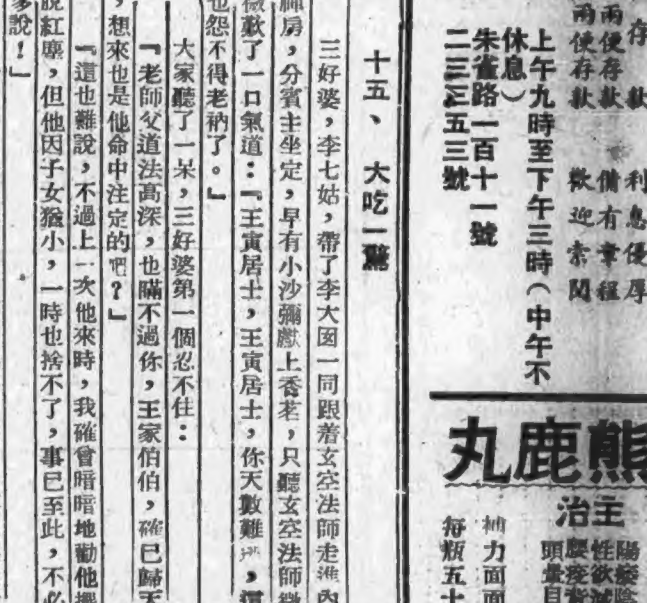 存款
兩便存款　利息優厚
兩便存款　備有章程
歡迎索閱
上午九時至下午三時（中午不
休息）
朱雀路一百十一號
二三三五三號
熊鹿丸
主治
陽痿陰
性欲減
腰痠背
頭暈目
補力面面
每瓶五十
十五、大吃一驚
三好婆，李七姑，帶了李大囡一同跟着玄空法師走進內
禪房，分賓主坐定，早有小沙彌獻上香茗，只聽玄空法師微
微歎了一口氣道：『王寅居士，王寅居士，你天數難逃，這
也怨不得老衲了。』
大家聽了一呆，三好婆第一個忍不住：
『老師父道法高深，也瞞不過你，王家伯伯，確已歸天
，想來也是他命中注定的吧？』
『這也難說，不過上一次他來時，我確曾暗暗地勸他擺
脫紅塵，但他因子女猶小，一時也捨不了，事已至此，不必
多說！』